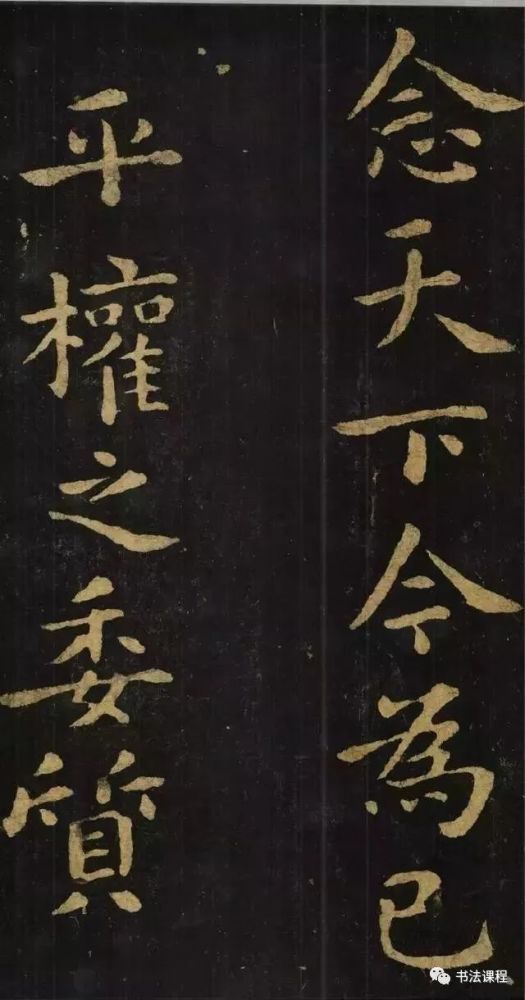 念天下今為已
平權之委質
书法课程